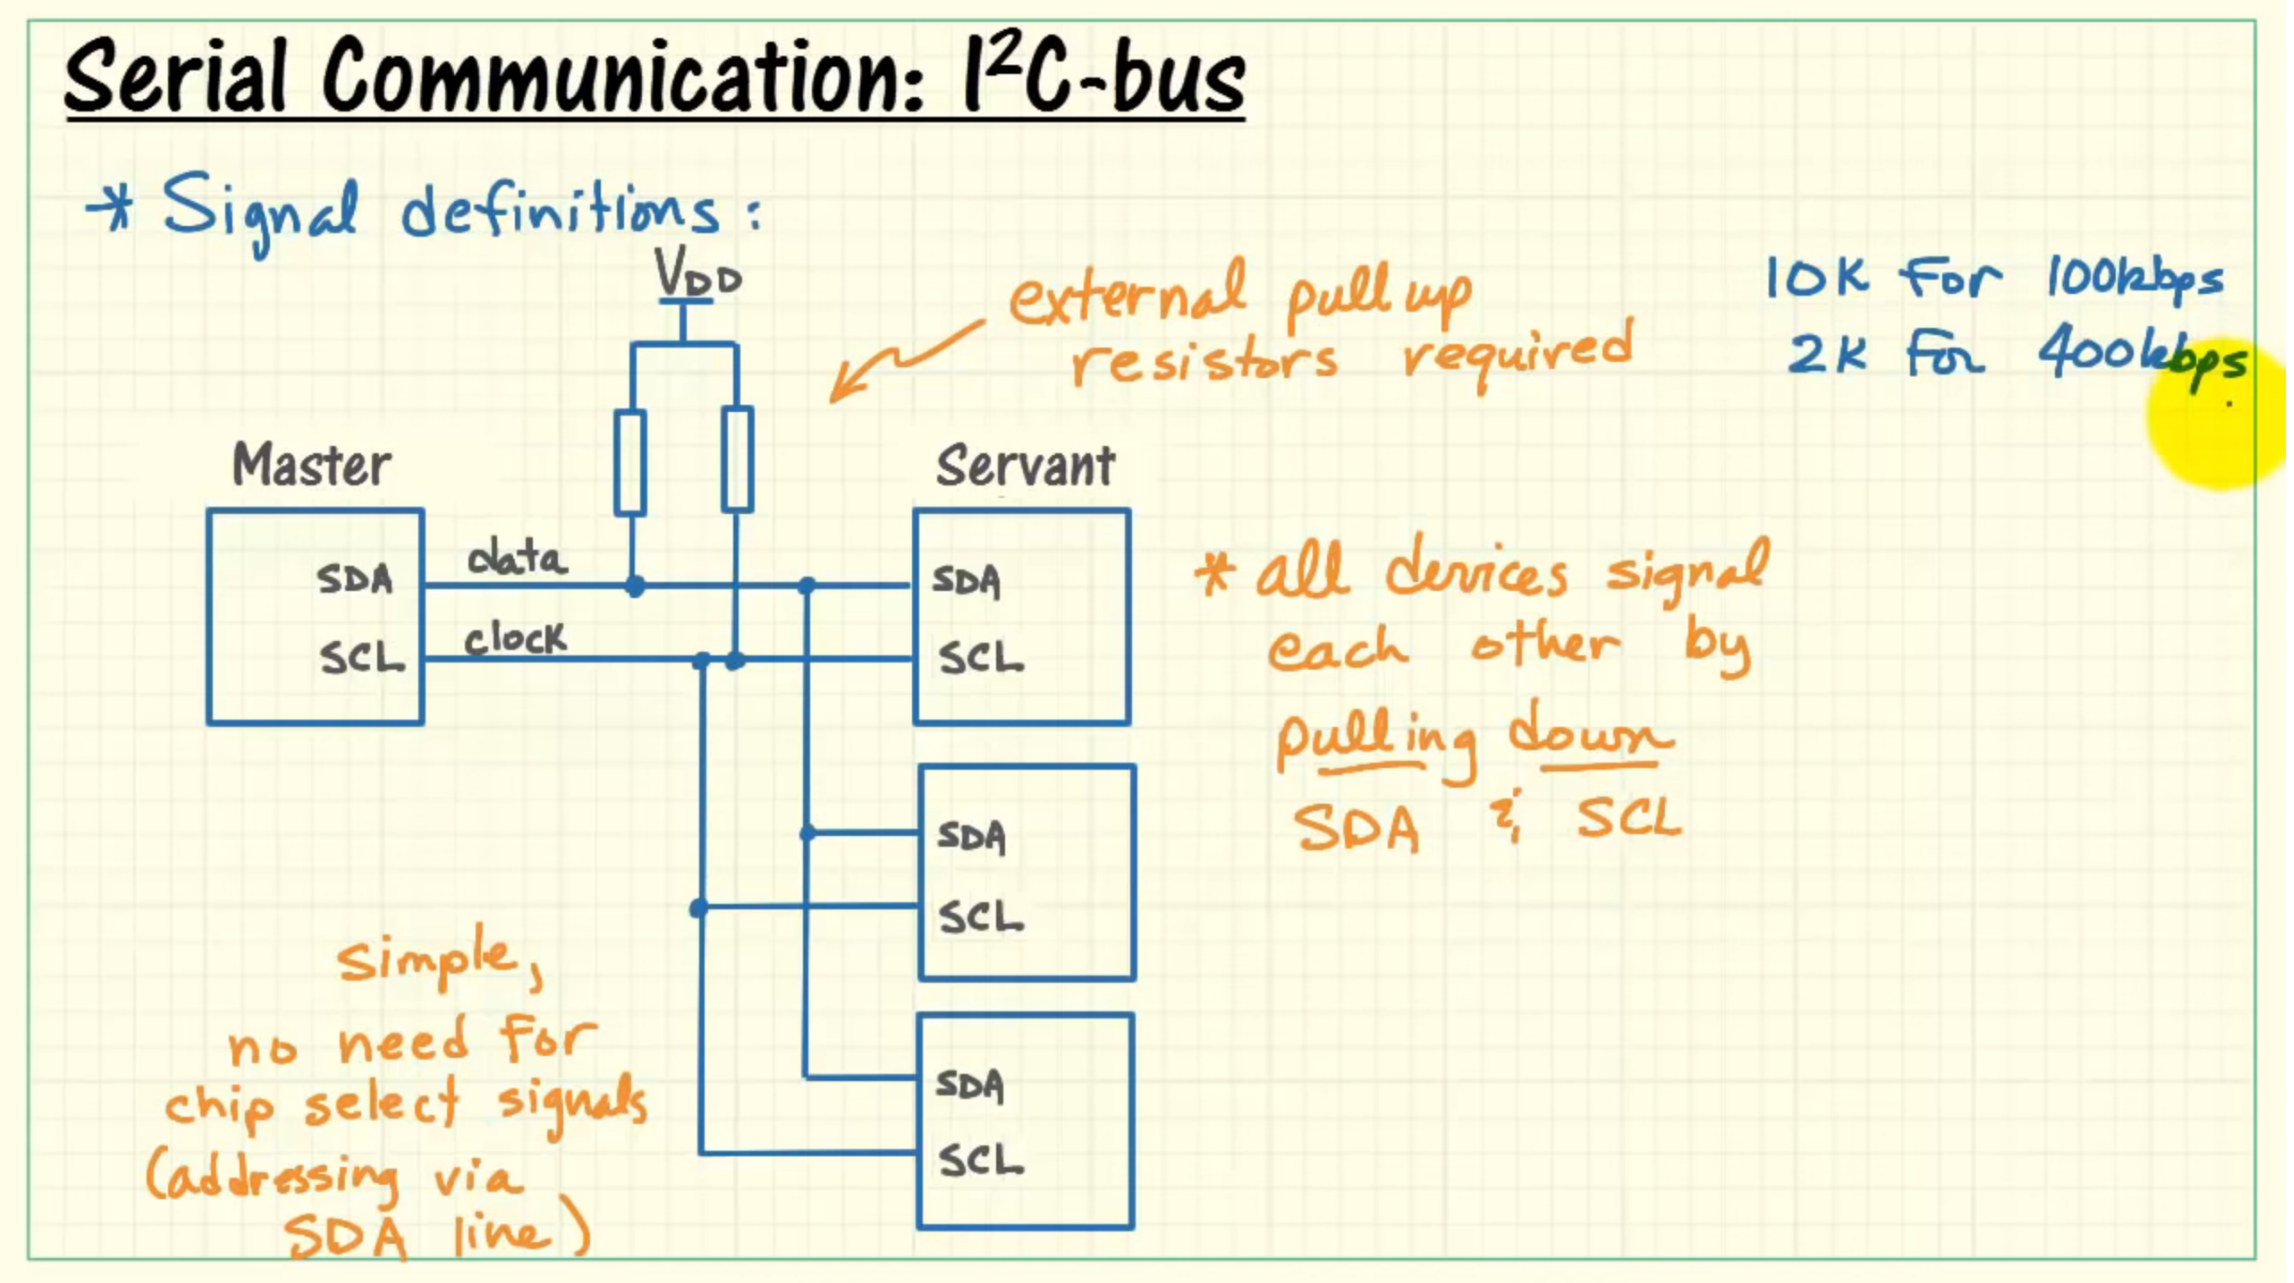 Serial Communication: I²C-bus
* Signal definitions:
VDD
external pull up
resistors required
10K for 100kbps
2K for 400kbps
Master
Servant
SDA
data
SCL
clock
SDA
SCL
* all devices signal
each other by
pulling down
SDA & SCL
SDA
SCL
SDA
SCL
simple,
no need for
chip select signals
(addressing via
SDA line)